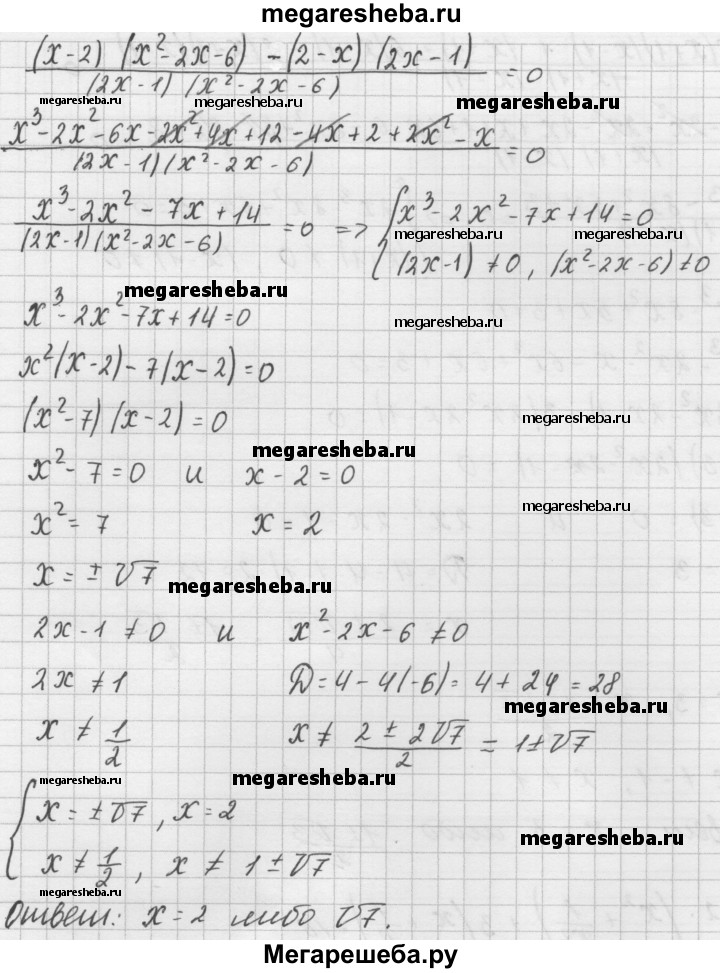 megaresheba.ru
(x-2) (x²-2x-6) - (2-x) (2x-1) / (2x-1) (x²-2x-6) = 0
megaresheba.ru megaresheba.ru megaresheba.ru
x³-2x²-6x-2x²+4x+12-4x+2+2x²-x / (2x-1)(x²-2x-6) = 0
x³-2x²-7x+14 / (2x-1)(x²-2x-6) = 0 => { x³-2x²-7x+14=0
megaresheba.ru megaresheba.ru
(2x-1)≠0, (x²-2x-6)≠0
megaresheba.ru
x³-2x²-7x+14=0
megaresheba.ru
x²(x-2)-7(x-2)=0
(x²-7)(x-2)=0
megaresheba.ru
megaresheba.ru
x²-7=0 и x-2=0
megaresheba.ru
x²=7 x=2
x=±√7
megaresheba.ru
2x-1≠0 и x²-2x-6≠0
2x≠1 D=4-4(-6)=4+24=28
megaresheba.ru
x≠1/2 x≠ 2±2√7 / 2 = 1±√7
megaresheba.ru megaresheba.ru
{ x=±√7, x=2
megaresheba.ru
x≠1/2, x≠1±√7
megaresheba.ru
Ответ: x=2 либо √7.
Мегарешеба.ру